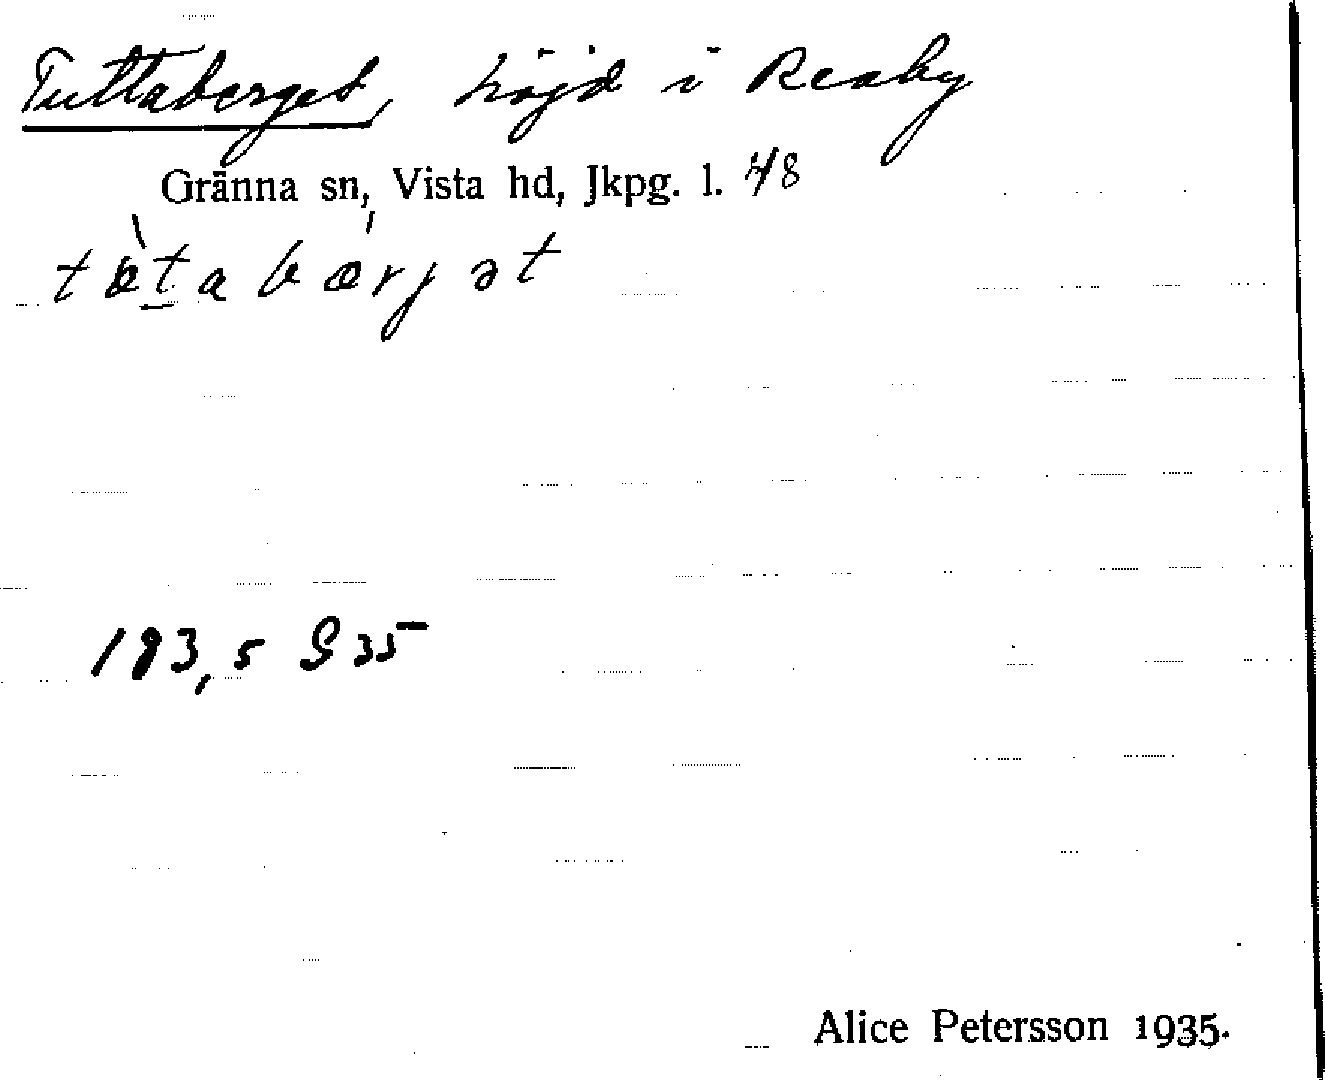 Tuttaberget, höjd i Reaby
Gränna sn, Vista hd, Jkpg. l. 48
tɵ̀tabærjət
183,5 S 35
Alice Petersson 1935.